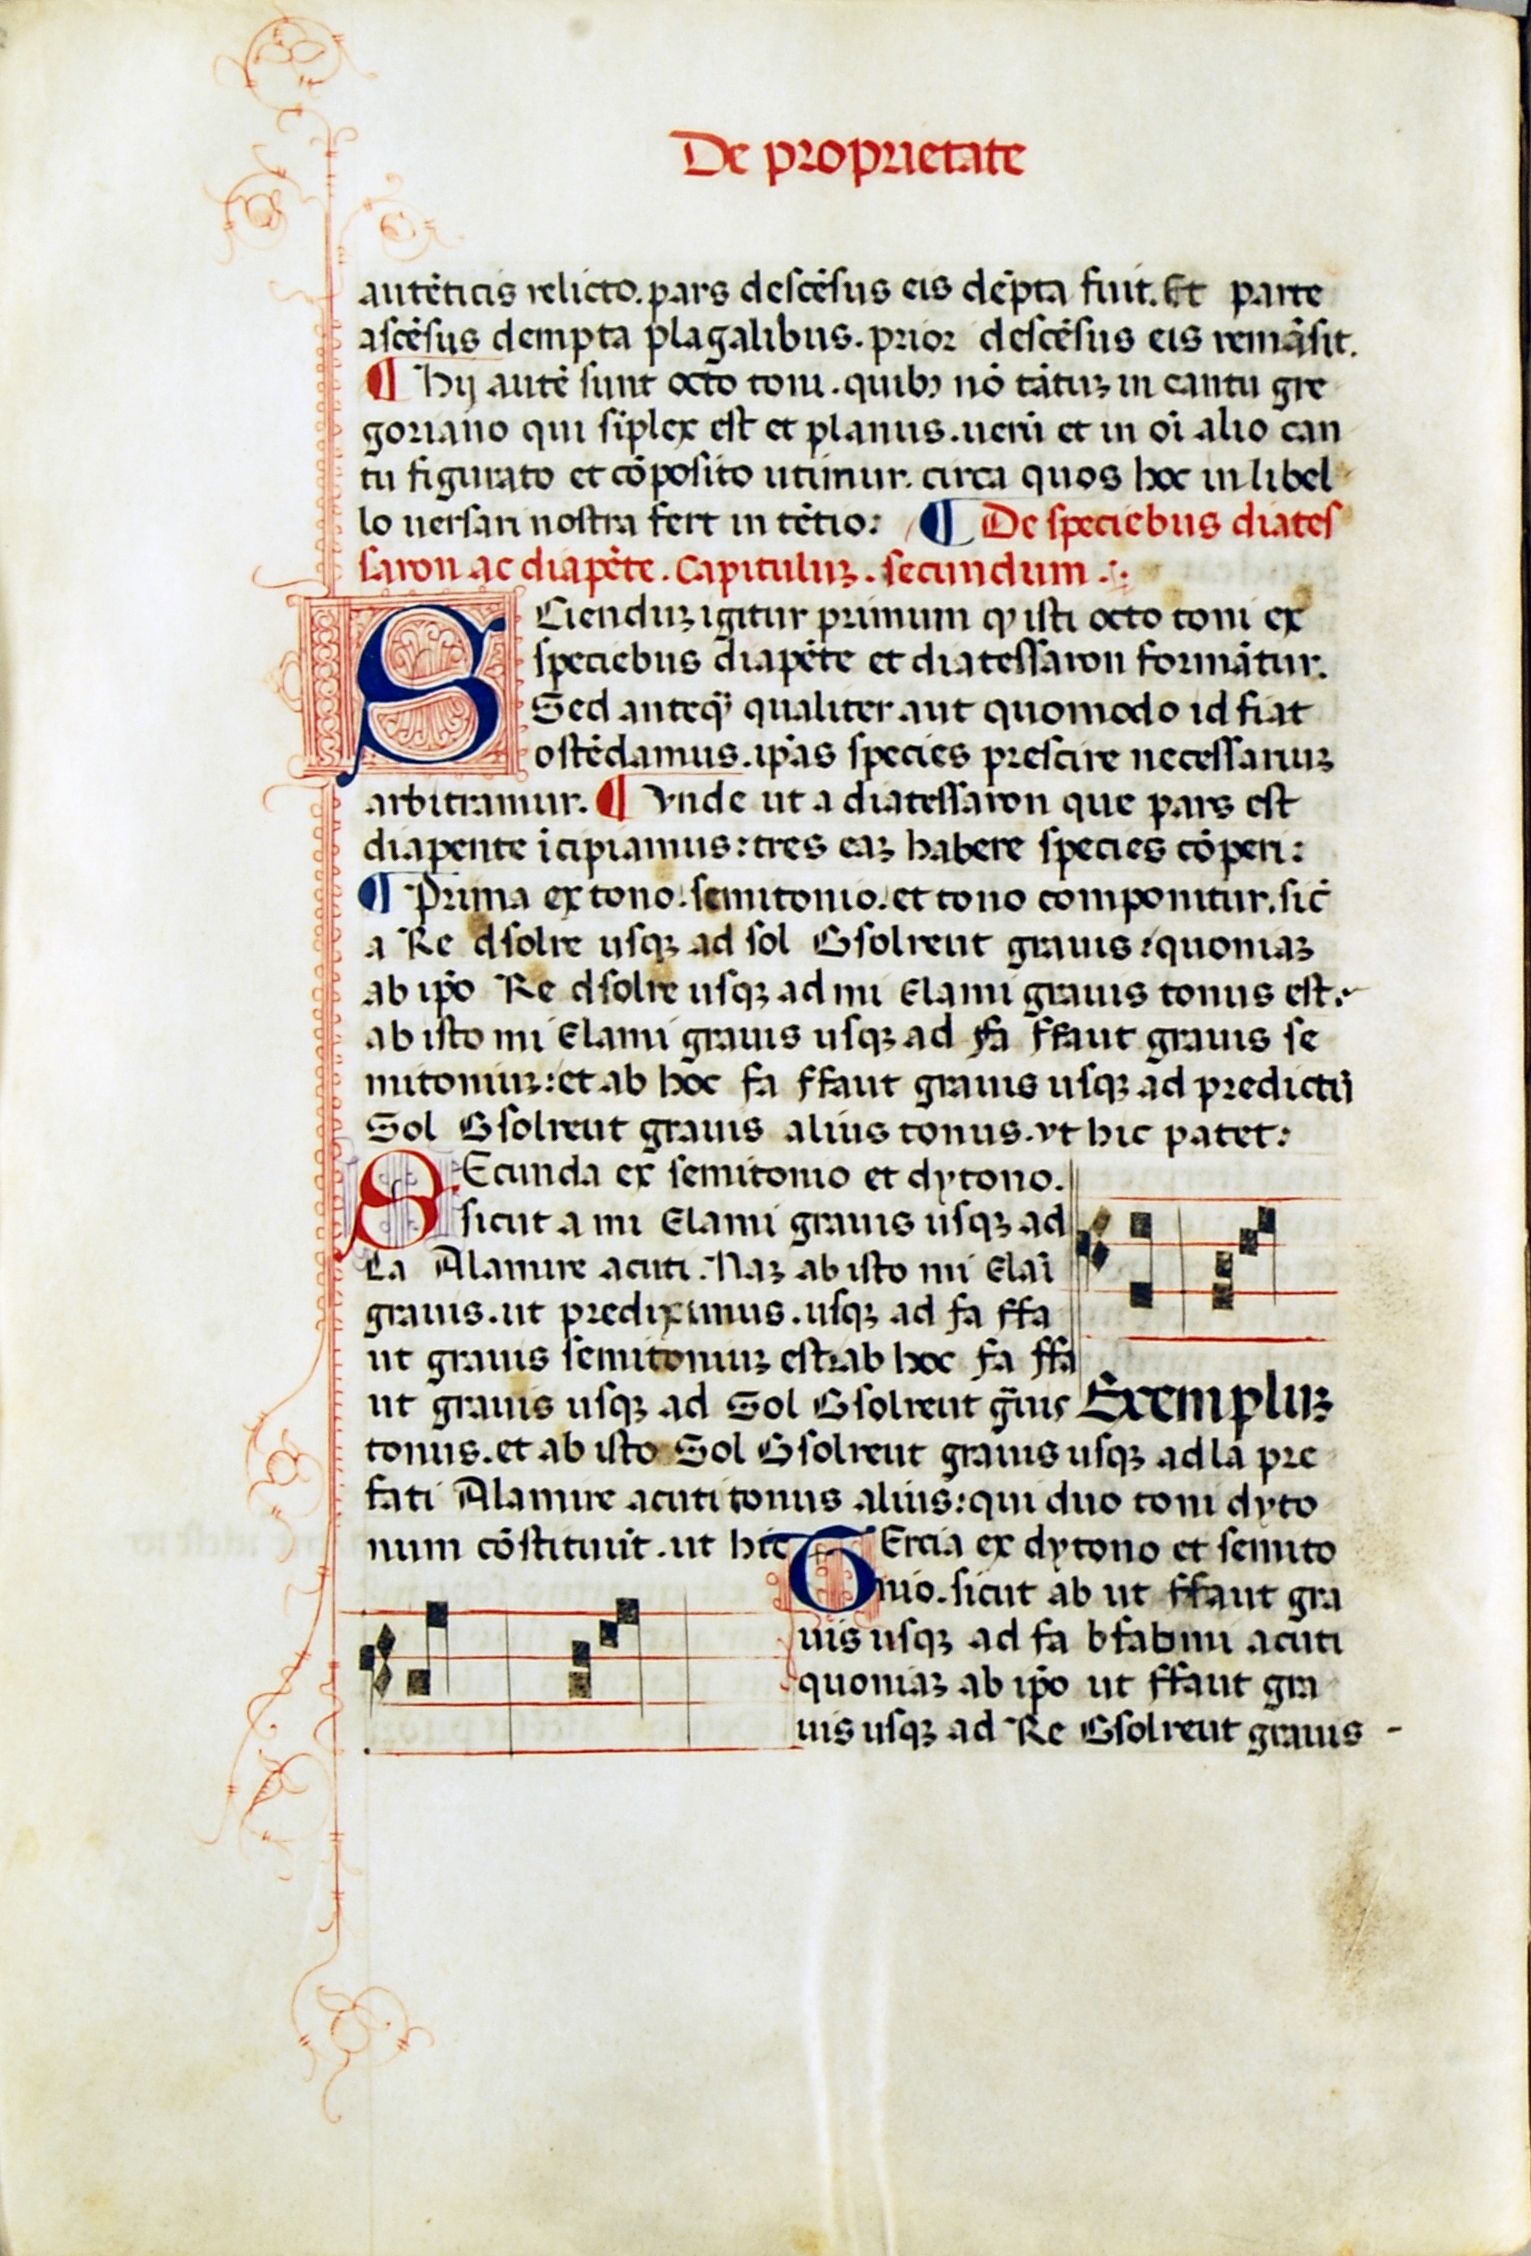 De proprietate
autēticis relicto. pars descēsus eis dēpta fuit. Et parte
ascēsus dempta plagalibus. prior descēsus eis remāsit.
¶ Hij autē sunt octo toni. quibꝫ nō tātuꝫ in cantu gre
goriano qui sīplex est et planus. uerū et in oī alio can
tu figurato et cōposito utimur. circa quos hoc in libel
lo uersari nostra fert in tētio: ¶ De speciebus diates
saron ac diapēte. Capituluꝫ. secundum.
SCienduꝫ igitur primum ꝙ isti octo toni ex
speciebus diapēte et diatessaron formātur.
Sed anteqꝫ̄ qualiter aut quomodo id fiat
ostēdamus. ip̄as species prescire necessariuꝫ
arbitramur. ¶ Vnde ut a diatessaron que pars est
diapente īcipiamus: tres eaꝫ habere species cōperi:
¶ Prima ex tono. semitonio. et tono componitur. sic̄
a Re dsolre usqꝫ ad sol Gsolreut grauis: quoniaꝫ
ab ip̄o Re dsolre usqꝫ ad mi Elami grauis tonus est:
ab isto mi Elami grauis usqꝫ ad fa ffaut grauis se
mitoniuꝫ: et ab hoc fa ffaut grauis usqꝫ ad predictū
Sol Gsolreut grauis alius tonus. vt hic patet:
SEcunda ex semitonio et dytono.
sicut a mi Elami grauis usqꝫ ad
La Alamire acuti. Naꝫ ab isto mi Elaī
grauis. ut prediximus. usqꝫ ad fa ffa
ut grauis semitoniuꝫ est: ab hoc fa ffa
ut grauis usqꝫ ad Sol Gsolreut ḡuis
Exempluꝫ
tonus. et ab isto Sol Gsolreut grauis usqꝫ ad la pre
fati Alamire acuti tonus alius: qui duo toni dyto
num cōstituūt. ut hic
TErcia ex dytono et semito
nio. sicut ab ut ffaut gra
uis usqꝫ ad fa bfabmi acuti
quoniaꝫ ab ip̄o ut ffaut gra
uis usqꝫ ad Re Gsolreut grauis -